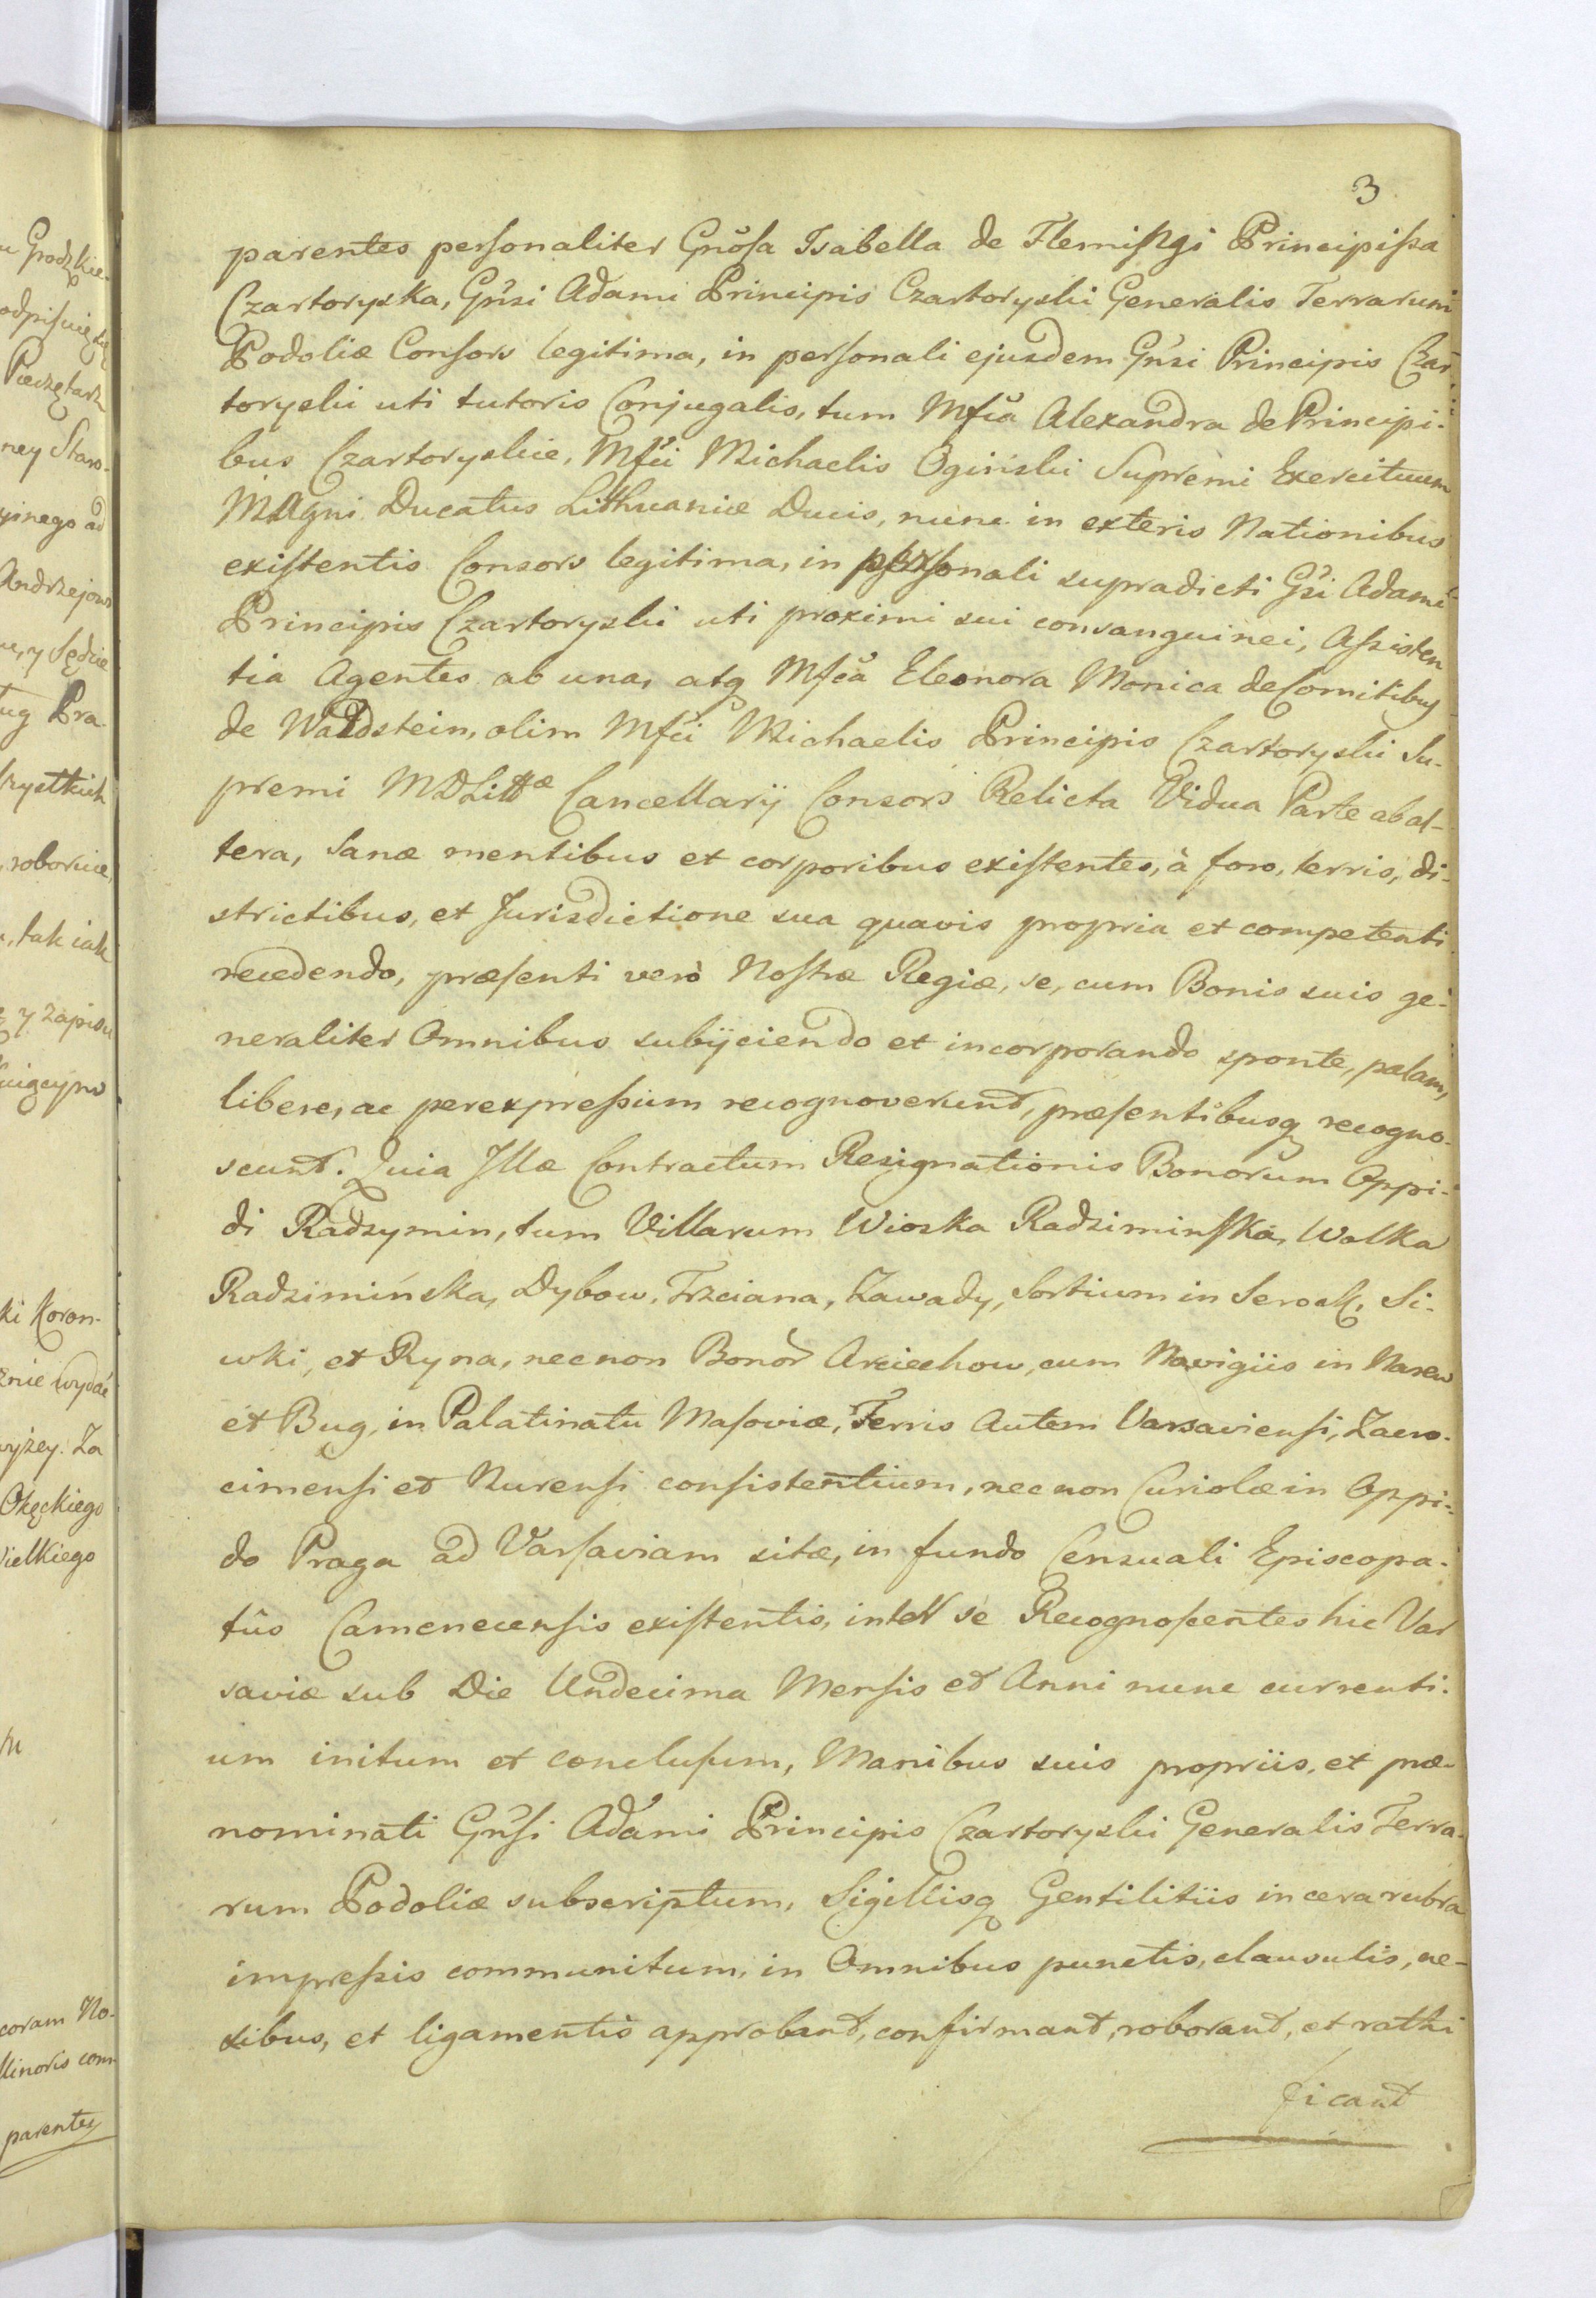 3
parentes personaliter Gnosa Isabella de Flemingi Principissa
Czartoryska, Gnsi Adami Principis Czartoryski Generalis Terrarum
Podoliæ Consors legitima, in personali ejusdem Gnsi Principis Czar-
toryski uti tutoris Conjugalis, tum Mfca Alexandra de Principi-
bus Czartoryskie, Mfci Michaelis Ogiński Supremi Exercituum
Magni Ducatus Litthuaniæ Ducis, nunc in exteris Nationibus
existentis Consors legitima, in personali supradicti Gsi Adami
Principis Czartoryski uti proximi sui consanguinei, Assisten
tia Agentes ab una, atq Mfca Eleonora Monica de Comitibus
de Waldstein, olim Mfci Michaelis Principis Czartoryski Su-
premi MDLittæ Cancellarij Consors Relicta Vidua Parte ab al-
tera, Sanæ mentibus et corporibus existentes, à foro, terris, di-
strictibus, et Jurisdictione sua quavis propria et competenti
recedendo, præsenti verò Nostræ Regiæ, se, cum Bonis suis ge-
neraliter Omnibus subijciendo et incorporando sponte, palam,
libere, ac perexpressum recognoverunt, præsentibusq recogno-
scunt. Quia Illæ Contractum Resignationis Bonorum Oppi-
di Radzymin, tum Villarum Wioska Radziminska, Wolka
Radzimińska, Dybow, Trzciana, Zawady, Sortium in Serock, Si-
wki, et Ryna, necnon Bonor Arciechow, cum Navigiis in Narew
et Bug, in Palatinatu Masoviæ, Terris Autem Varsaviensi, Zacro-
cimensi et Nurensi consistentium, necnon Curiolæ in Oppi-
do Praga ad Varsaviam sitæ, in fundo Censuali Episcopa-
tûs Camenecensis existentis, inter se Recognoscentes hic Var
saviæ sub Die Undecima Mensis et Anni nunc currenti-
um initum et conclusum, Manibus suis propriis, et præ-
nominati Gnsi Adami Principis Czartoryski Generalis Terra-
rum Podoliæ subscriptum, Sigillisq Gentilitiis in cera rubra
impressis communitum, in Omnibus punctis, clausulis, ne-
xibus, et ligamentis approbant, confirmant, roborant, et rathi
ficant
u Grodzkie-
odpisuię się
Pieczętarz
ney Staro-
yinego ad
Andrzejow
ue, y Sędzie
ug Pra-
szystkich
roboruie,
, tak iak
y Zapisu
ki Koron-
znie wydać
wyżey. Za
Okęckiego
Wielkiego
coram No-
Minoris com
parentes